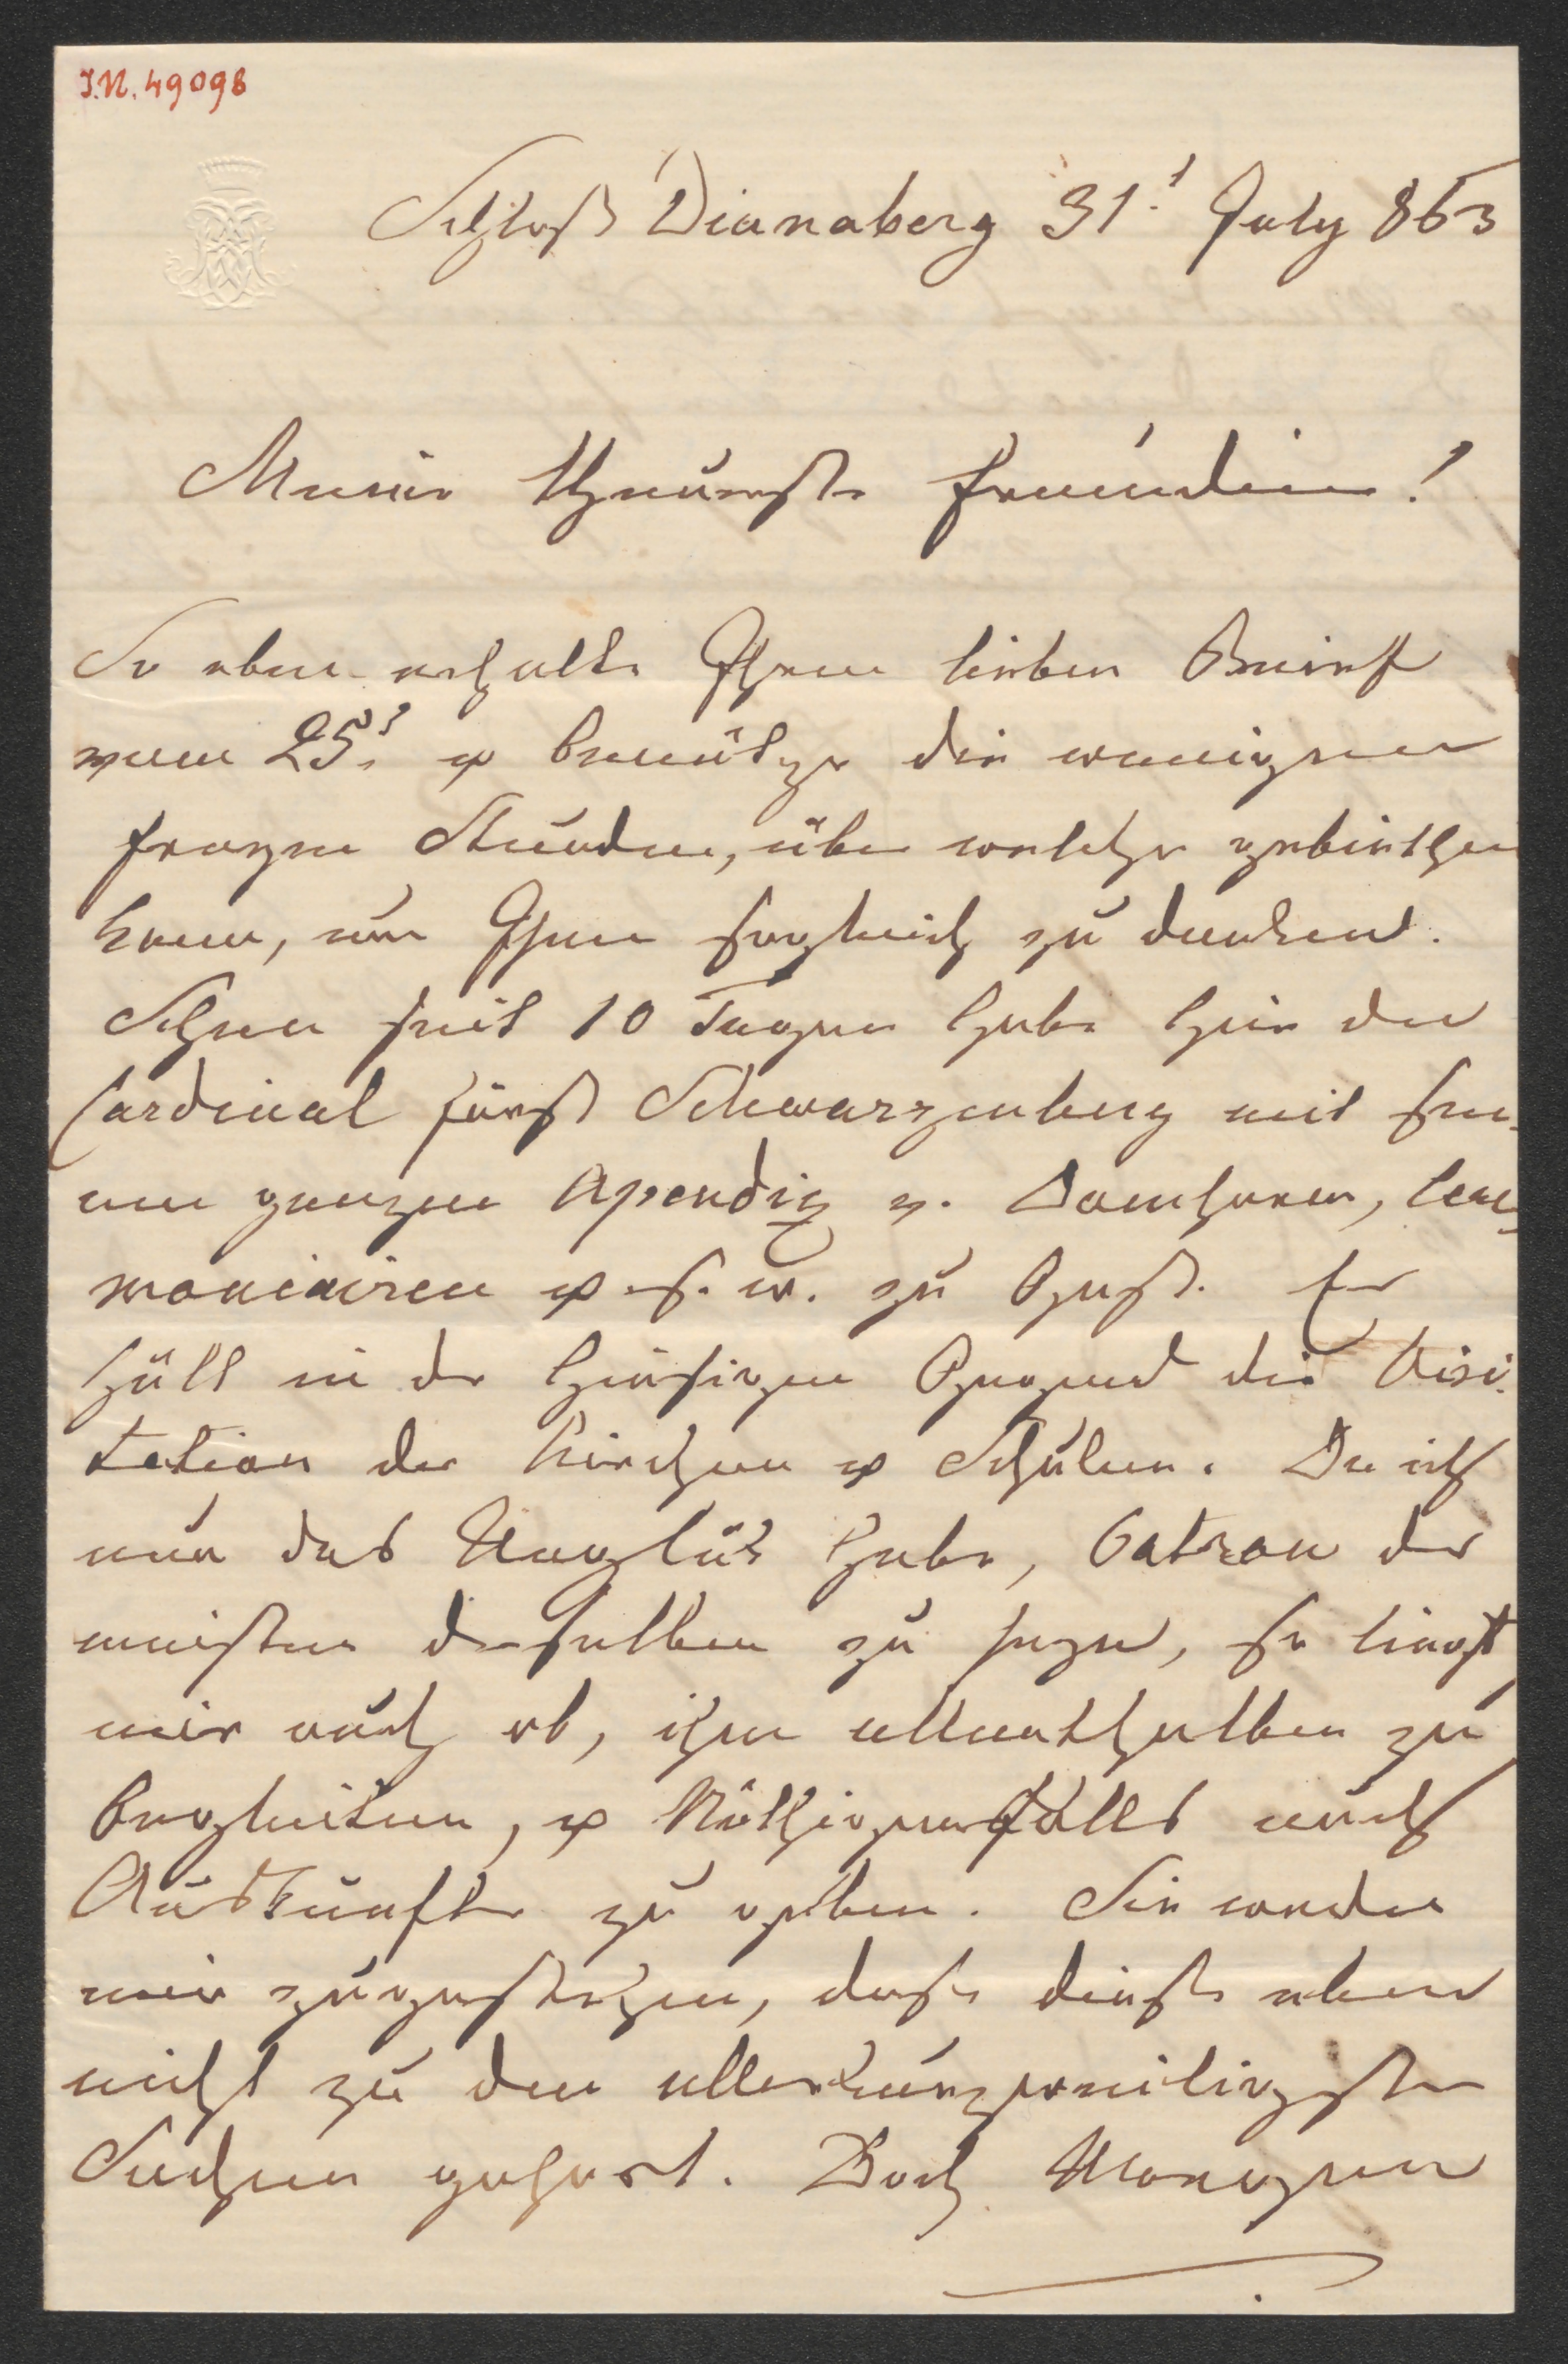 I.N. 49098
Schloß Dianaberg 31.t July 863
Meine theuerste Freundin!
So eben erhalte Ihren lieben Brief
vom 25.t & benütze die wenigen
freyen Stunden, über welche gebiethen
kann, um Ihnen sogleich zu danken.
Schon seit 10 Tagen habe hier den
Cardinal Fürst Schwarzenberg mit sei-
nem ganzen Apendix v. Domherren, Cere-
moniairen & s. w. zu Gast. Er
hält in der hiesigen Gegend die Visi-
tation der Kirchen & Schulen. Da ich
nun das Unglük habe, Patron der
meisten derselben zu seyn, so liegt
mir auch ob, ihn allenthalben zu
begleiten, & Nöthigenfalls auch
Auskünfte zu geben. Sie werden
mir zugestehen, dass diess eben
nicht zu den allerkurzweiligsten
Sachen gehört. Doch Morgen